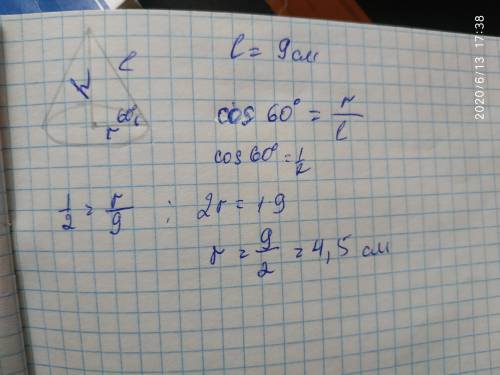 l = 9 см
h
l
60°
r
cos 60° = r/l
cos 60° = 1/2
1/2 = r/9 ; 2r = 1·9
r = 9/2 = 4,5 см
2020/6/13 17:38